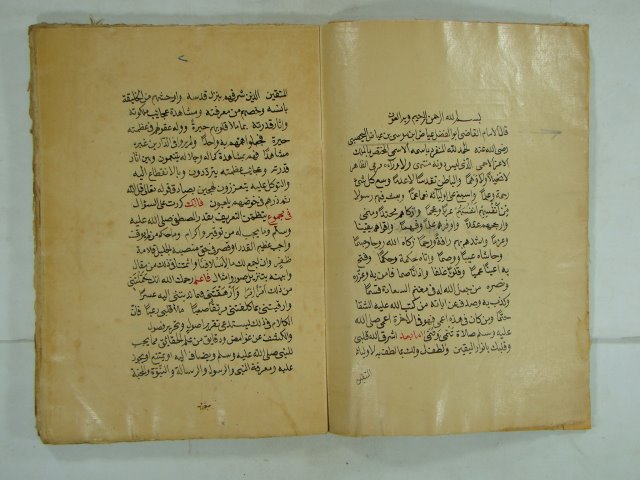 بسم الله الرحمن الرحيم وبه العون
قال الامام القاضي ابو الفضل عياض بن موسى بن عياض اليحصبي
رضي الله عنه الحمد لله المنفرد باسمه الاسمى المختص بالملك
الاعز الاحمى الذي ليس دونه منتهى ولا وراءه مرمى الظاهر
لا تخيلا ولا وهما والباطن تقدسا لا عدما وسع كل شيء
رحمة وعلما واسبغ على اوليائه نعما عما وبعث فيهم رسولا
من انفسهم انفسهم عربا وعجما وازكاهم محتدا ومنمى
وارجحهم عقلا وحلما واوفرهم علما وفهما واقواهم يقينا
وعزما واشدهم بهم رافة ورحما زكاه الله روحا وجسما
وحاشاه عيبا ووصما واتاه حكمة وحكما وفتح
به اعينا عميا وقلوبا غلفا واذانا صما فامن به وعزره
ونصره من جعل الله له في مغنم السعادة قسما
وكذب به وصدف عن اياته من كتب الله عليه الشقا
حتما ومن كان في هذه اعمى فهو في الاخرة اعمى صلى الله
عليه وسلم صلاة تنمو وتنمى اما بعد اشرق الله قلبي
وقلبك بانوار اليقين ولطف لي ولك بما لطف به لاوليائه
المتقين
للمتقين الذين شرفهم بنزل قدسه واوحشهم من الخليقة
بانسه وخصهم من معرفته ومشاهدة عجايب ملكوته
واثار قدرته بما ملا قلوبهم حبرة ووله عقولهم في عظمته
حيرة فجعلوا همهم به واحدا ولم يروا في الدارين غيره
مشاهدا فهم بمشاهدة كماله وجلاله يتنعمون وبين اثار
قدرته وعجايب عظمته يترددون وبالانقطاع اليه
والتوكل عليه يتعززون لهجين بصادق قوله تعالى قل الله
ثم ذرهم في خوضهم يلعبون فانك كررت علي السؤال
في مجموع يتضمن التعريف بقدر المصطفى صلى الله عليه
وسلم وما يجب له من توقير واكرام وما حكم من لم يوف
واجب عظيم القدر او قصر في حق منصبه الجليل قلامة
ظفر وان اجمع لك ما لاسلافنا وائمتنا في ذلك من مقال
وابينه بتنزيل صور وامثال فاعلم رحمك الله انك حملتني
من ذلك امرا امرا وارهقتني فيما ندبتني اليه عسرا
وارقيتني بما كلفتني مرتقا صعبا ملا قلبي رعبا فان
الكلام في ذلك يستدعي تقرير اصول وتحرير فصول
والكشف عن غوامض ودقايق من علم الحقايق مما يجب
للنبي صلى الله عليه وسلم ويضاف اليه او يمتنع او يجوز
عليه ومعرفة النبي والرسول والرسالة والنبوة والمحبة